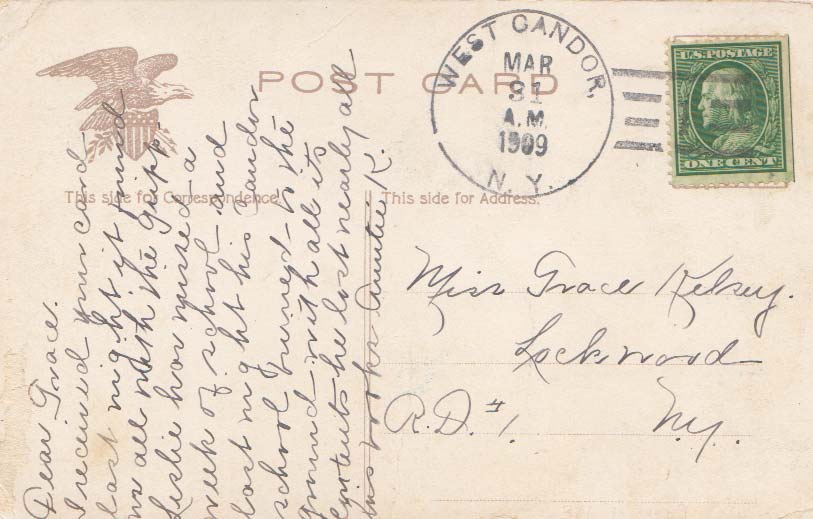 POST CARD
WEST CANDOR,
MAR
31
A.M.
1909
N. Y.
U.S. POSTAGE
ONE CENT
This side for Correspondence.
This side for Address.
Dear Grace.
I received your card
last night it found
we all with the Gripp
Leslie has missed a
week of school and
last night his Candor
school burned to the
ground with all its
contents he lost nearly all
his books Auntie K.
Miss Grace Kelsey.
Lockwood
R.D. #1.
N.Y.